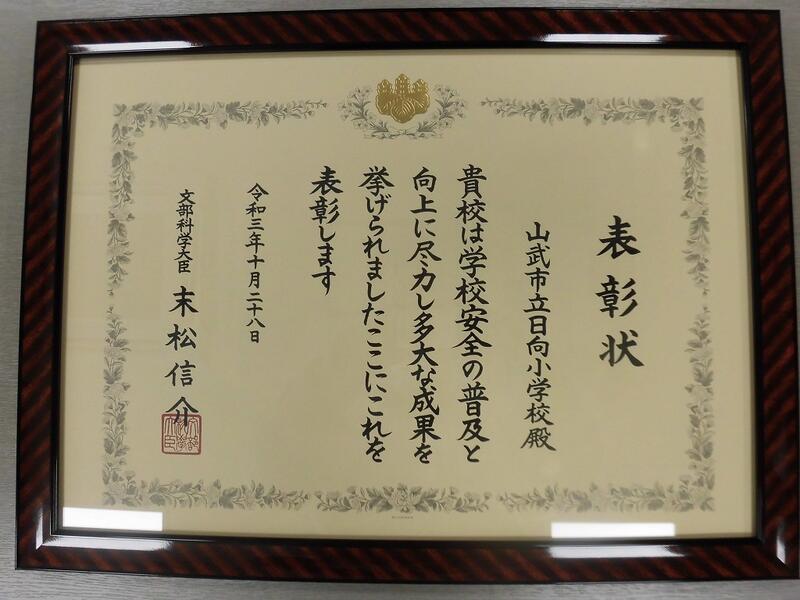 表彰状
山武市立日向小学校殿
貴校は学校安全の普及と
向上に尽力し多大な成果を
挙げられましたここにこれを
表彰します
令和三年十月二十八日
文部科学大臣 末松信介